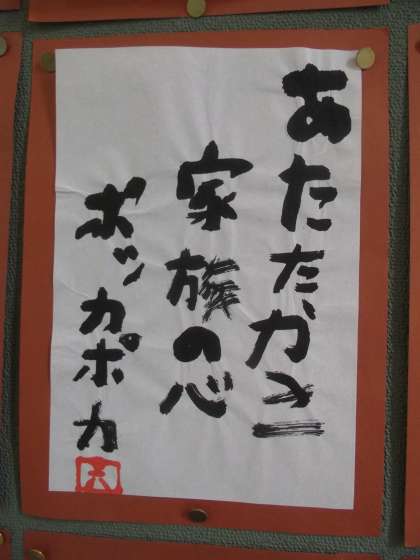 あたたかさ
家族の心
ポッカポカ